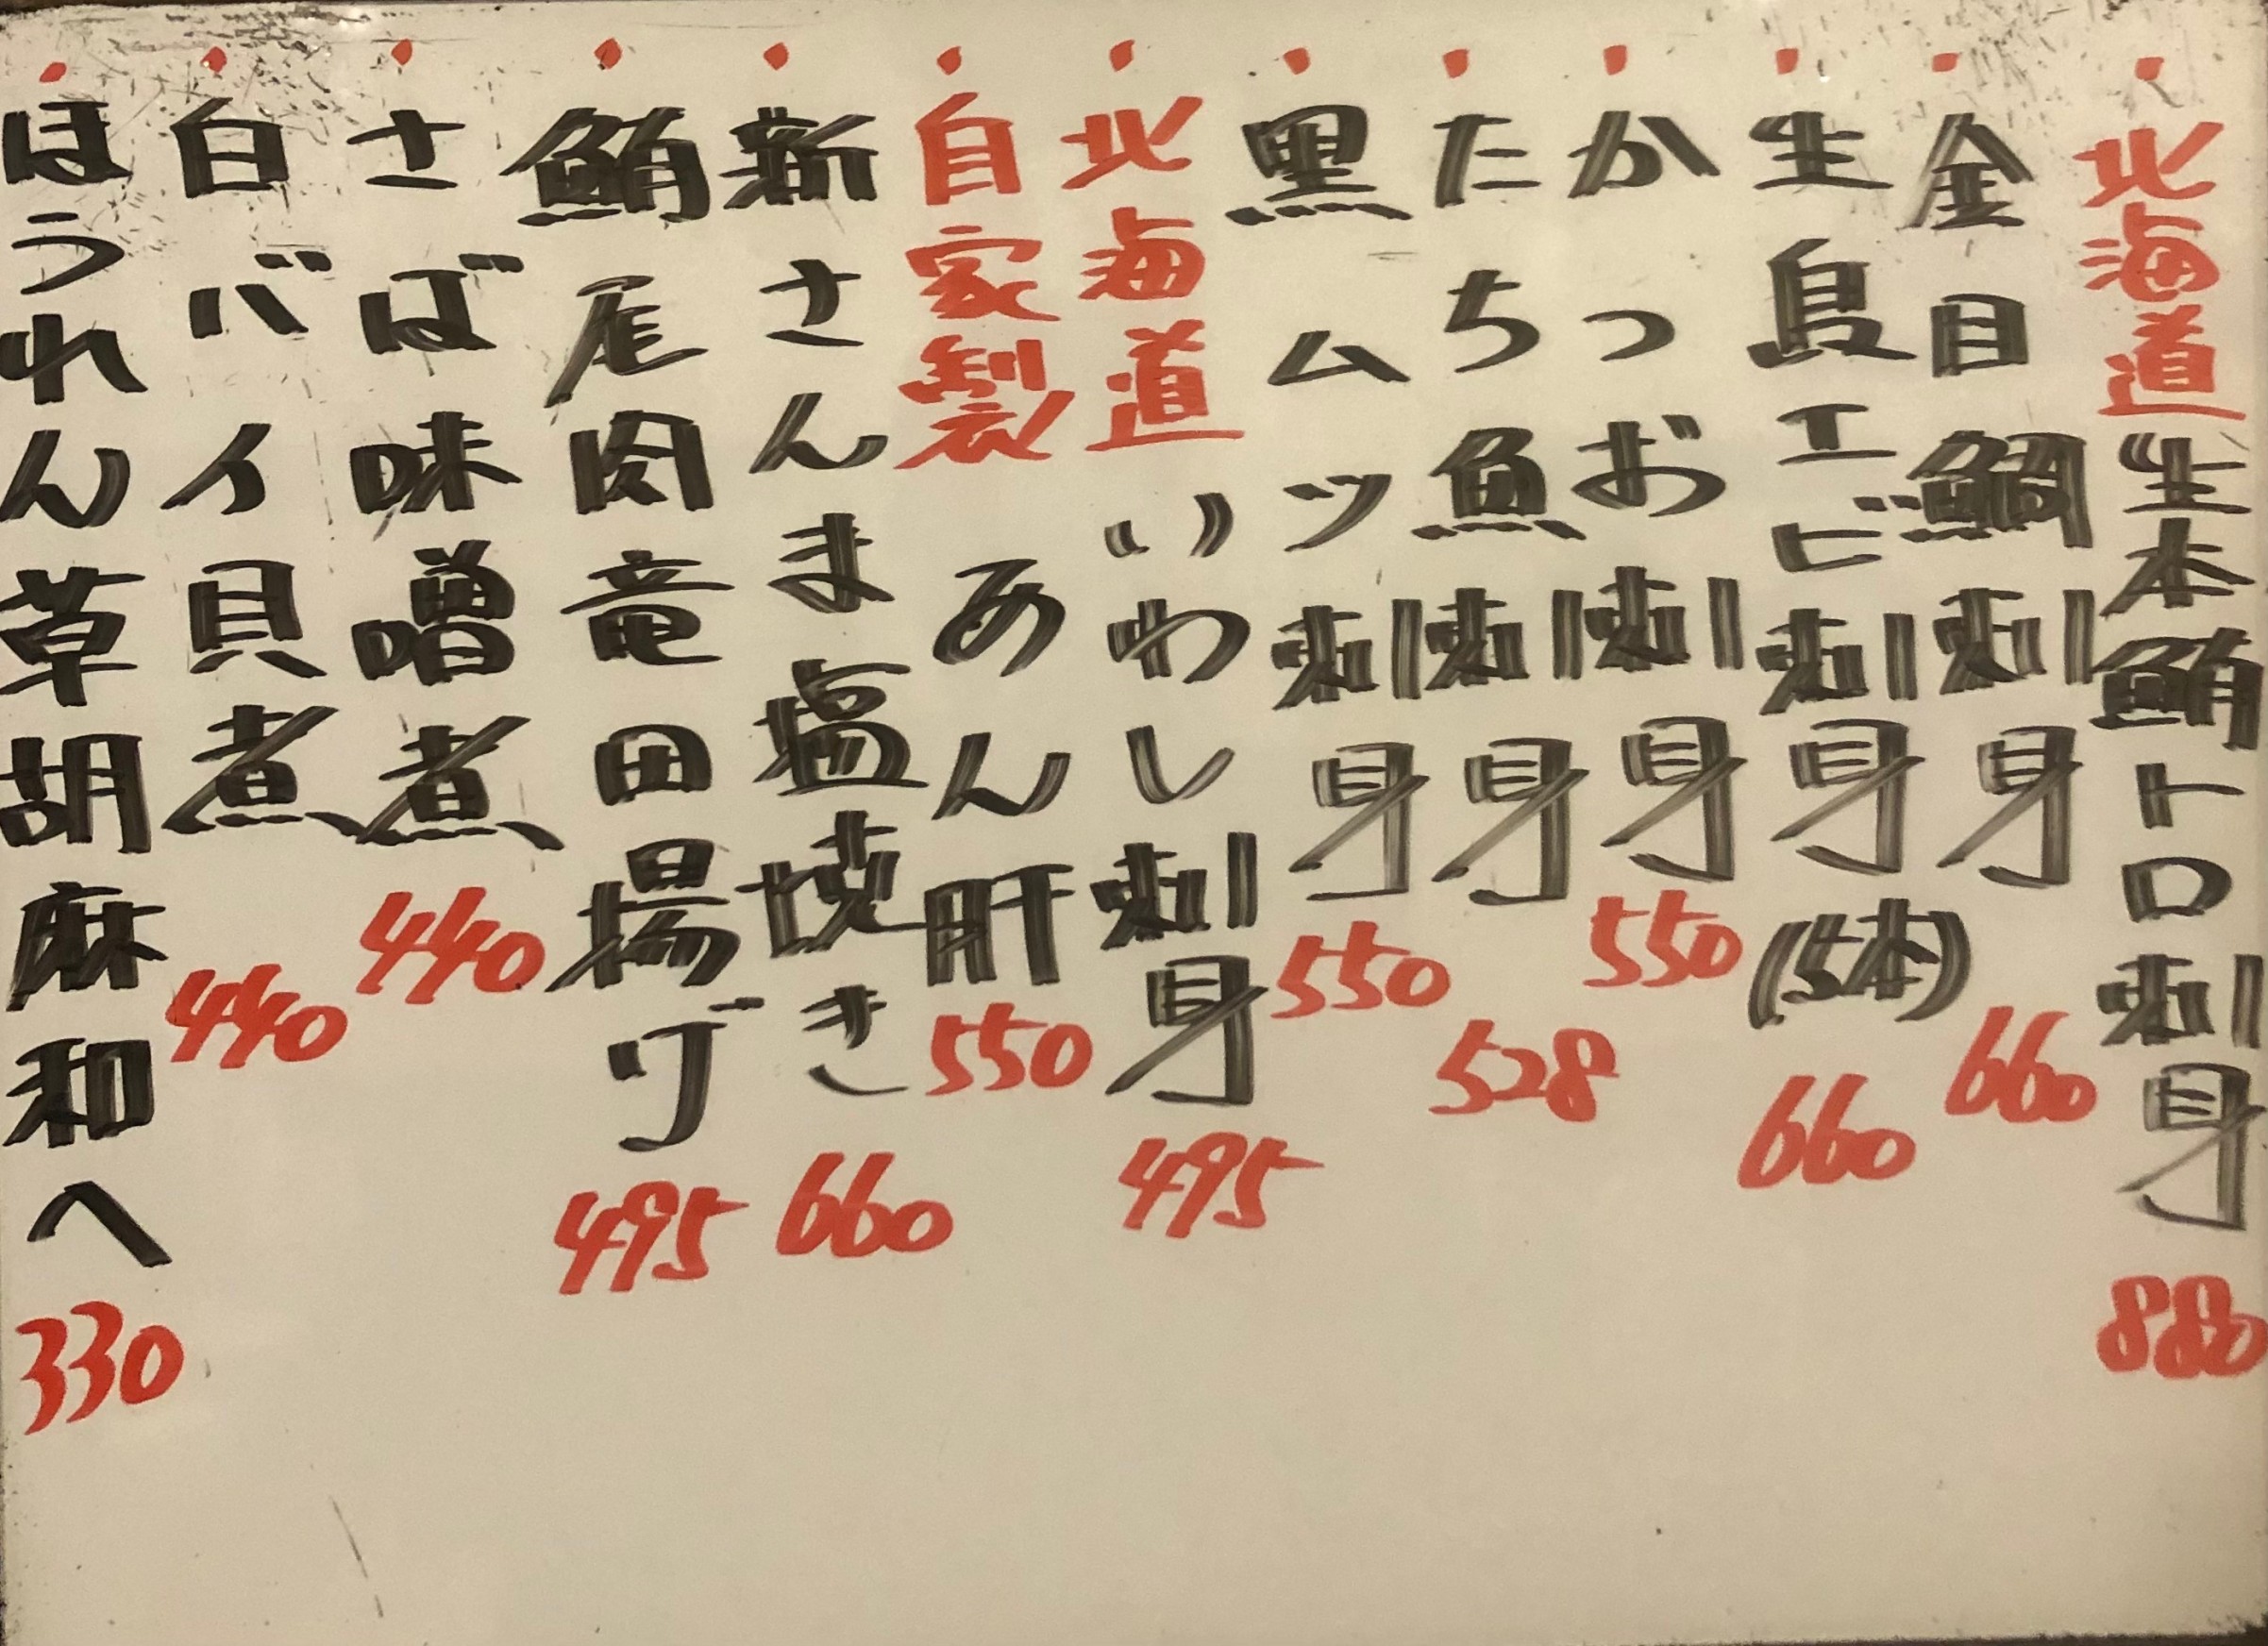 ・北海道生本鮪トロ刺身 880
・金目鯛刺身 660
・生島エビ刺身(5本) 660
・かつお刺身 550
・たち魚刺身 528
・黒ムツ刺身 550
・北海道いわし刺身 495
・自家製あん肝 550
・新さんま塩焼き 660
・鮪尾肉竜田揚げ 495
・さば味噌煮 440
・白バイ貝煮 440
・ほうれん草胡麻和へ 330